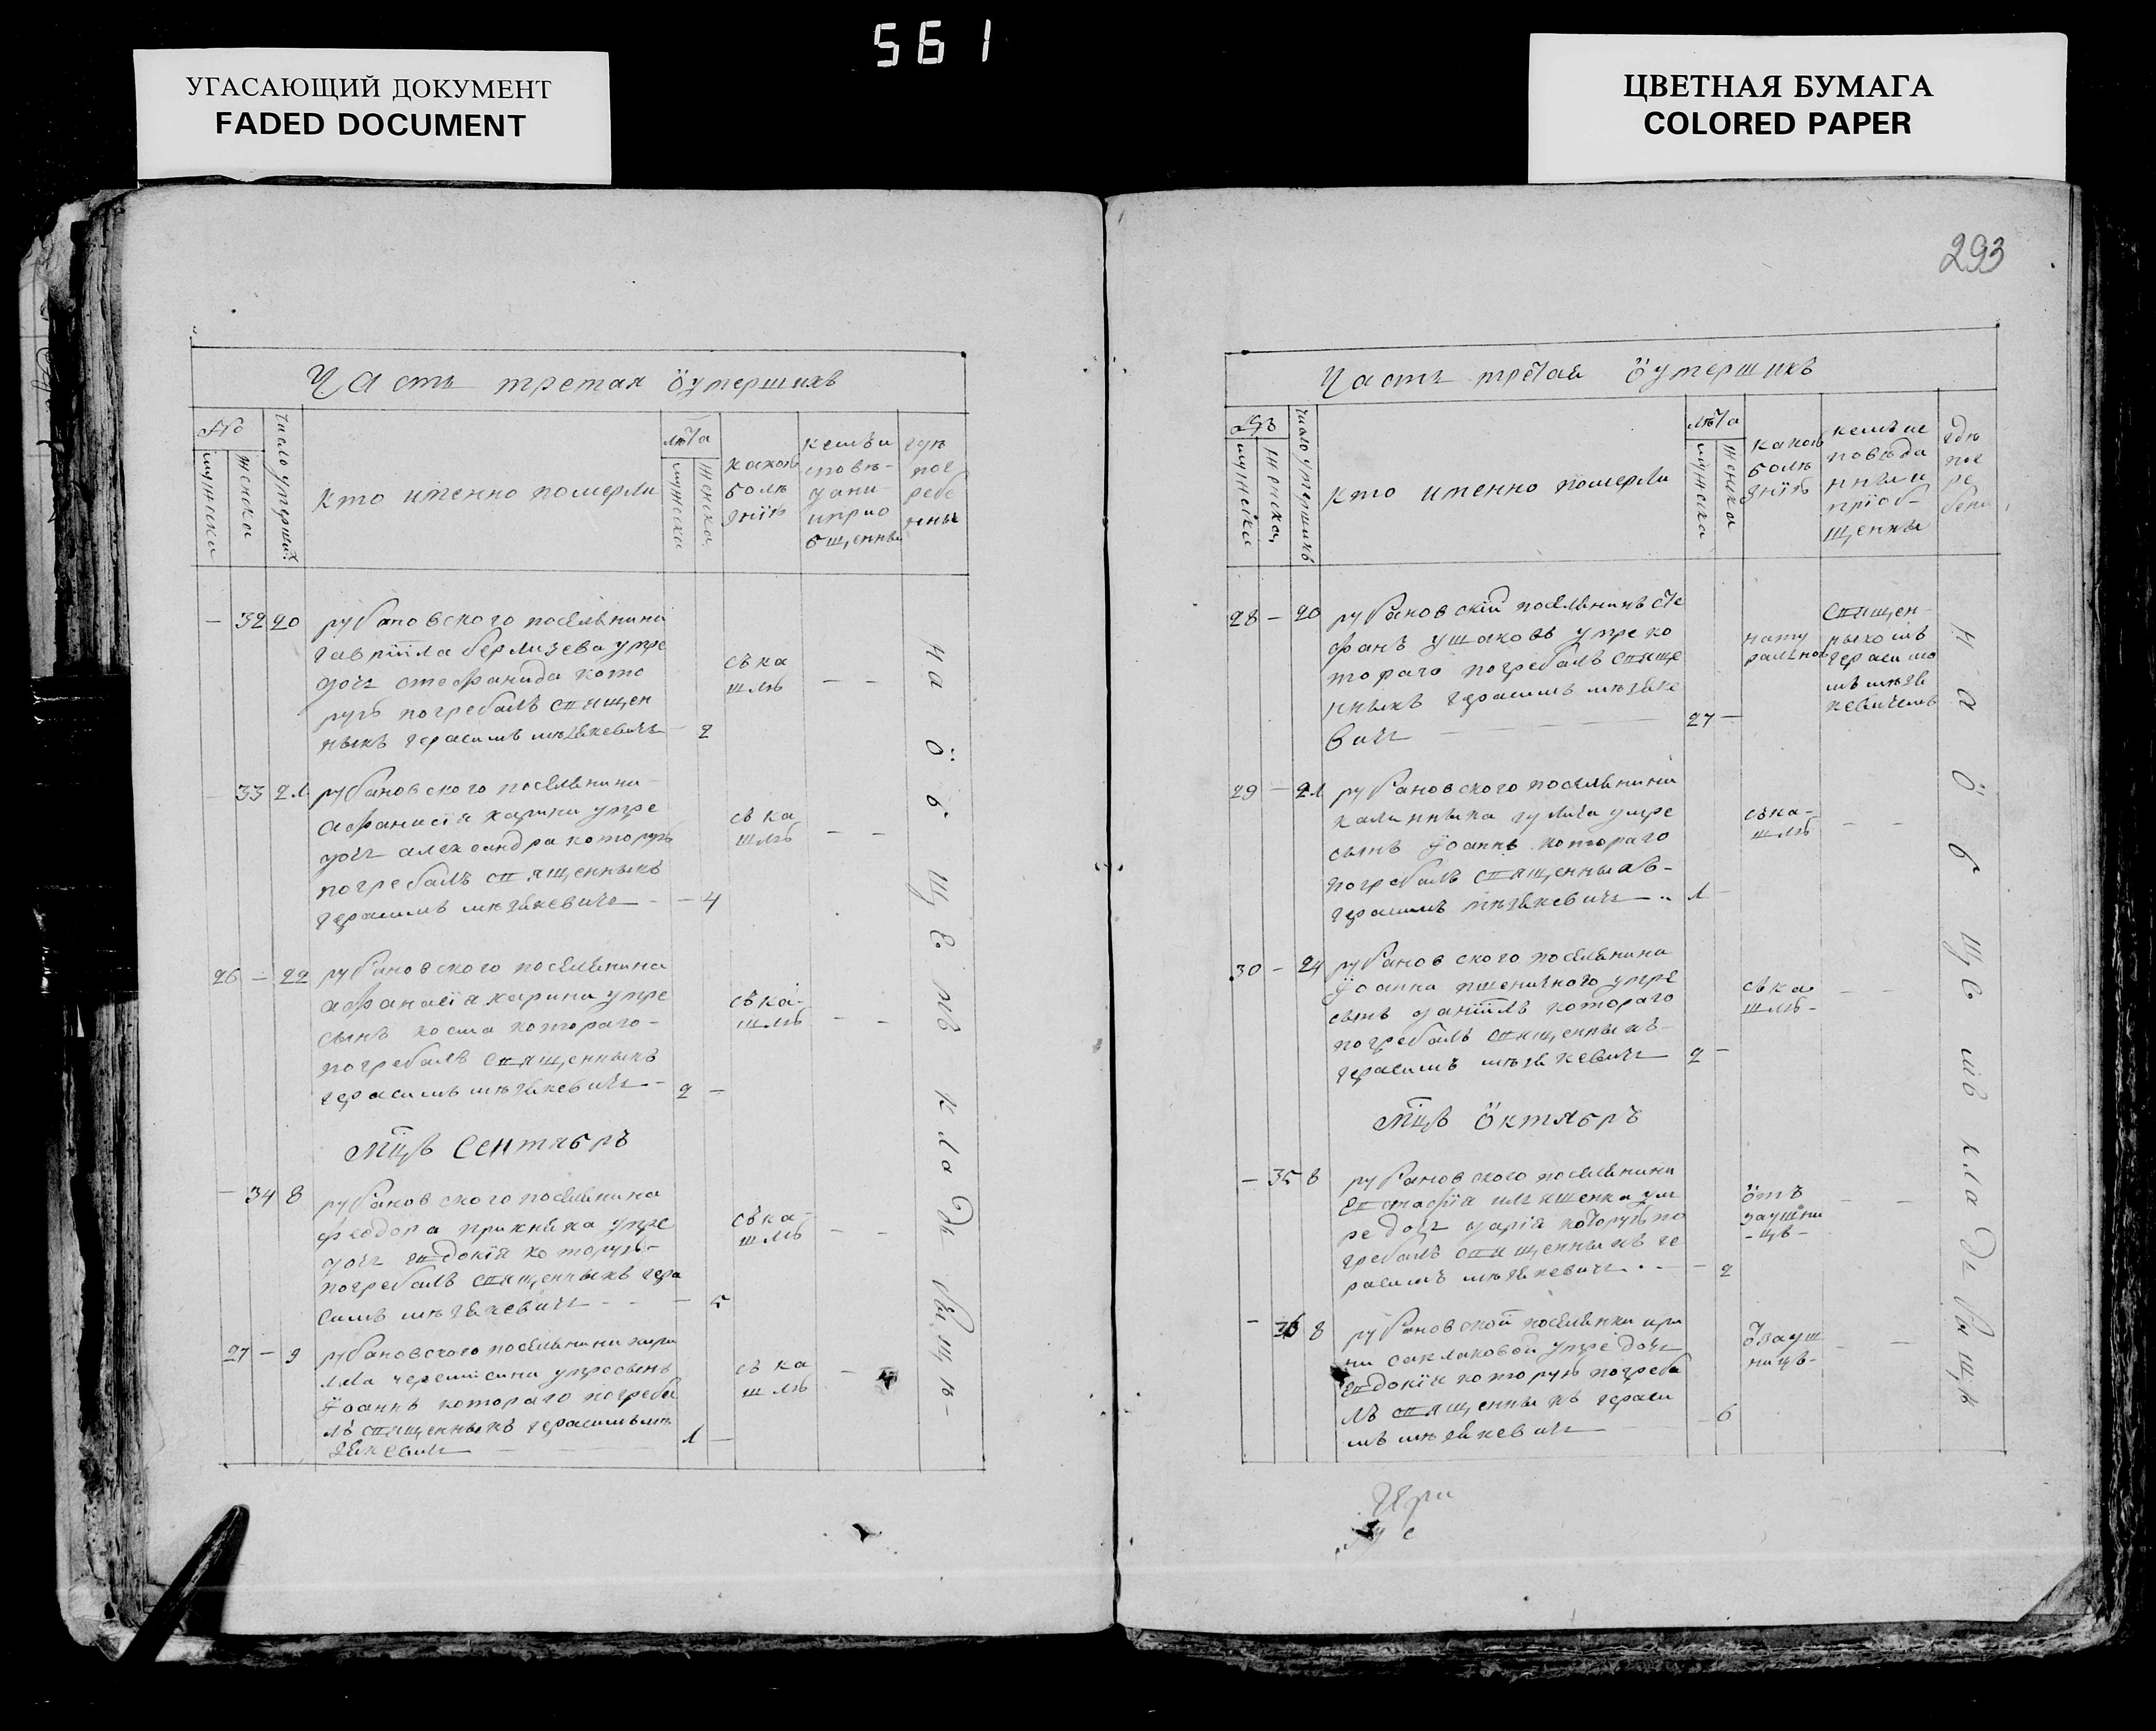 561
УГАСАЮЩИЙ ДОКУМЕНТ
FADED DOCUMENT
ЦВЕТНАЯ БУМАГА
COLORED PAPER
Часть третая öумершихъ
№
мужеска
женска
Число умерших
Кто именно померли
лѣта
мужеска
женска
какою
болѣ
знїю
кемъ и
сповѣ-
дани
и прио
бщенны
гдѣ
пог
ребе
нны
- 32 20
рубановского поселянина
гаврїила бермизева умре
дочь стефанида кото
рую погребалъ священ
никъ герасимъ - 2
съ ка
шлю
- -
33 21
рубановского поселянина
афанасїя харина умре
дочь александра которую
погребалъ священникъ
герасимъ - 4
съ ка
шлю
- -
26 - 22
рубановского поселянина
афанасїя харина умре
сынъ косма котораго-
погребалъ священникъ
герасимъ 2 -
съ ка-
шлю
- -
Мцъ Сентябрь
- 34 8
рубановского поселянина
феодора умре
дочь евдокїя которую-
погребалъ священникъ гера
симъ - 5
съ ка-
шлю
- -
27 - 9
рубановского поселянина кири
лла черепысина умре сынъ
їоаннъ котораго погреба
лъ священникъ герасимъ
1 -
съ ка
шлю
-
на öбщемъ кладъвыщѣ
293
Часть третая öумершихъ
мужеска
женска
число умершихъ
Кто именно померли
лѣта
мужеска
женска
какою
болѣ
знїю
кемъ ис
повѣда
нны и
прїоб-
щенны
гдѣ
пог
ре
бены
28 - 20
рубановскїй поселянинъ сте
фанъ ушаковъ умре ко
тораго погребалъ свяще
нныкъ герасимъ
вичь 27 -
нату
ралною
священ-
ныкомъ
герасимо
мъ
кевичемъ
29 - 21
рубановского поселянина
калинныка гулича умре
сынъ їоаннъ котораго
погребалъ священныкъ-
герасимъ 1
съ ка-
шлю
- -
30 - 24
рубановского поселянина
їоанна пшеничного умре
сынъ данїилъ котораго
погребалъ священныкъ-
герасимъ 2 -
съ ка
шлю-
- -
Мцъ öктябрь
- 35 8
рубановского поселянина
евстафїя илляшенка ум
ре дочь дарїя которую по
гребалъ священныкъ ге
расимъ - 2
öтъ
заушни
-цѣ-
- -
- 36 8
рубановской поселянки ири
ни саклаковой умре дочь
евдокїя которую погреба
лъ священныкъ гераси
мъ - 6
öзауш
ницѣ-
- -
на öбщемъ кладъвыщѣ